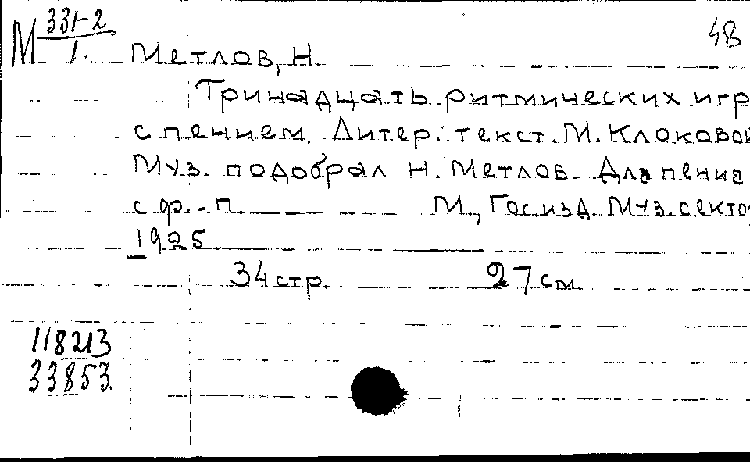 М 331-2/1.
48
Метлов, Н.
Тринадцать ритмических игр
с пением. Литер. текст. М. Клоковой
Муз. подобрал Н. Метлов. Для пения
с ф.-п. М., Гос. изд. Муз. секто
1925
34 стр. 27 см.
118213
33853.